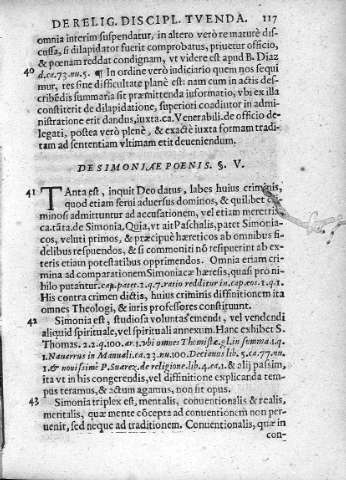 DE RELIG. DISCIPL. TVENDA. 117
omnia interim suspendatur, in altero verò re maturè dis-
cussa, si dilapidator fuerit comprobatus, priuetur officio,
& pœnam reddat condignam, vt videre est apud B. Diaz
40 d.ca.73.nu.5. ¶ In ordine verò iudiciario quem nos sequi
mur, res sine difficultate planè est: nam cum in actis des-
cribẽdis summaria sit præmittenda informatio, vbi ex illa
constiterit de dilapidatione, superiori coadiutor in admi-
nistratione erit dandus, iuxta. ca. Venerabili. de officio de-
legati, postea verò plenè, & exactè iuxta formam tradi-
tam ad sententiam vltimam erit deueniendum.
DE SIMONIAE POENIS. §. V.
41 TAnta est, inquit Deodatus, labes huius criminis,
quod etiam serui aduersus dominos, & quilibet cri-
minosi admittuntur ad accusationem, vel etiam meretrix
ca. tãta. de Simonia. Quia, vt ait Paschalis, patet Simonia-
cos, veluti primos, & præcipuè hæreticos ab omnibus fi-
delibus respuendos, & si commoniti nõ resipuerint ab ex-
teris etiam potestatibus opprimendos. Omnia etiam cri-
mina ad comparationem Simoniacæ hæresis, quasi pro ni-
hilo putantur. cap. patet. 1. q. 7. ratio redditur in cap. eos. 1. q. 1.
His contra crimen dictis, huius criminis diffinitionem ita
omnes Theologi, & iuris professores constituunt.
42 Simonia est, studiosa voluntas emendi, vel vendendi
aliquid spirituale, vel spirituali annexum. Hanc exhibet S.
Thomas. 2. 2. q. 100. ar. 1. vbi omnes Thomistæ. gl. in summa. 1. q.
1. Nauerrus in Manuali. ca. 23. nu. 100. Decianus lib. 5. ca. 77. nu.
1. & nouissimè P. Suarez. de religione lib. 4. ca. 1. & alij passim,
ita vt in his congerendis, vel diffinitione explicanda tem-
pus teramus, & actum agamus, non sit opus.
43 Simonia triplex est, mentalis, conuentionalis & realis,
mentalis, quæ mente cõcepta ad conuentionem non per-
uenit, sed neque ad traditionem. Conuentionalis, quæ in
con-